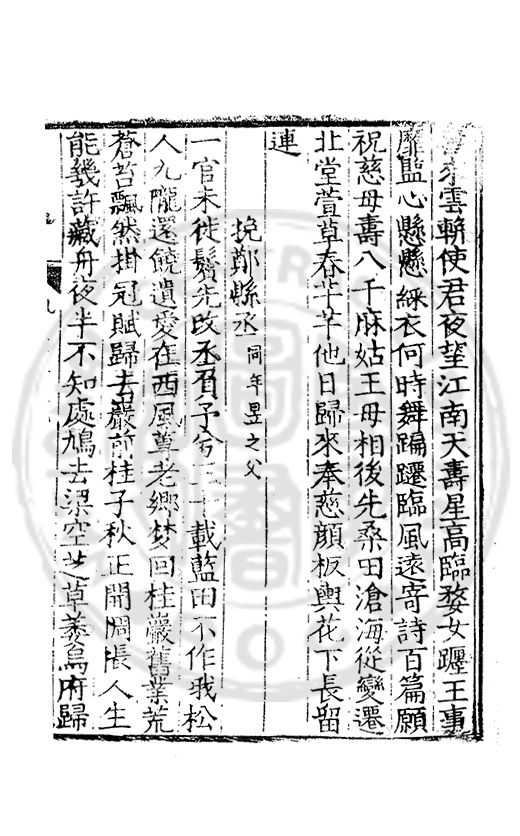 來雲軿使君夜望江南天壽星高臨婺女躔王事
靡盬心懸懸綵衣何時舞蹁躚臨風遠寄詩百篇願
祝慈母壽八千麻姑王母相後先桑田滄海從變遷
北堂萱草春芊芊他日歸來奉慈顔板輿花下長留
連
挽鄭縣丞同年昱之父
一官未徙鬢先改丞負予兮三十載藍田不作哦松
人九隴還饒遺愛在西風蓴老鄉夢回桂巖舊業荒
蒼苔飄然掛冠賦歸去巖前桂子秋正開惆悵人生
能幾許藏舟夜半不知處鳩去梁空芝草萎烏府歸